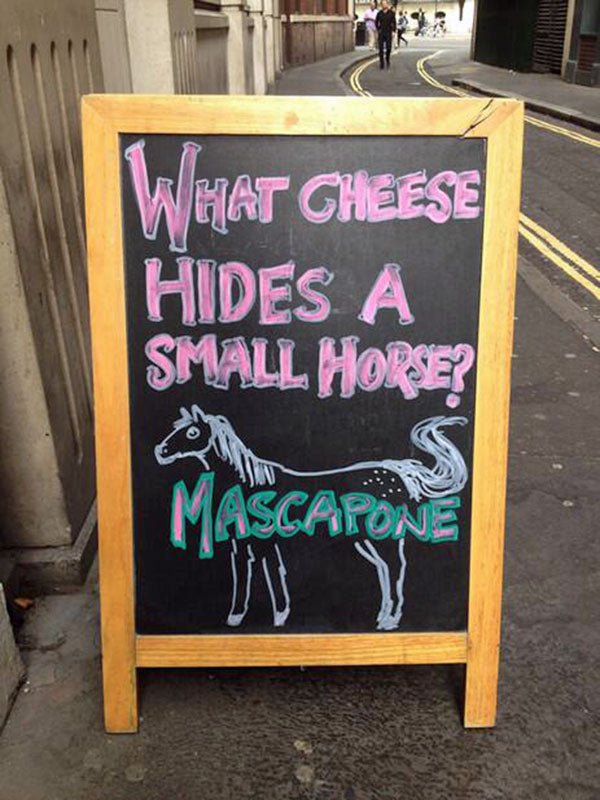 WHAT CHEESE
HIDES A
SMALL HORSE?
MASCAPONE